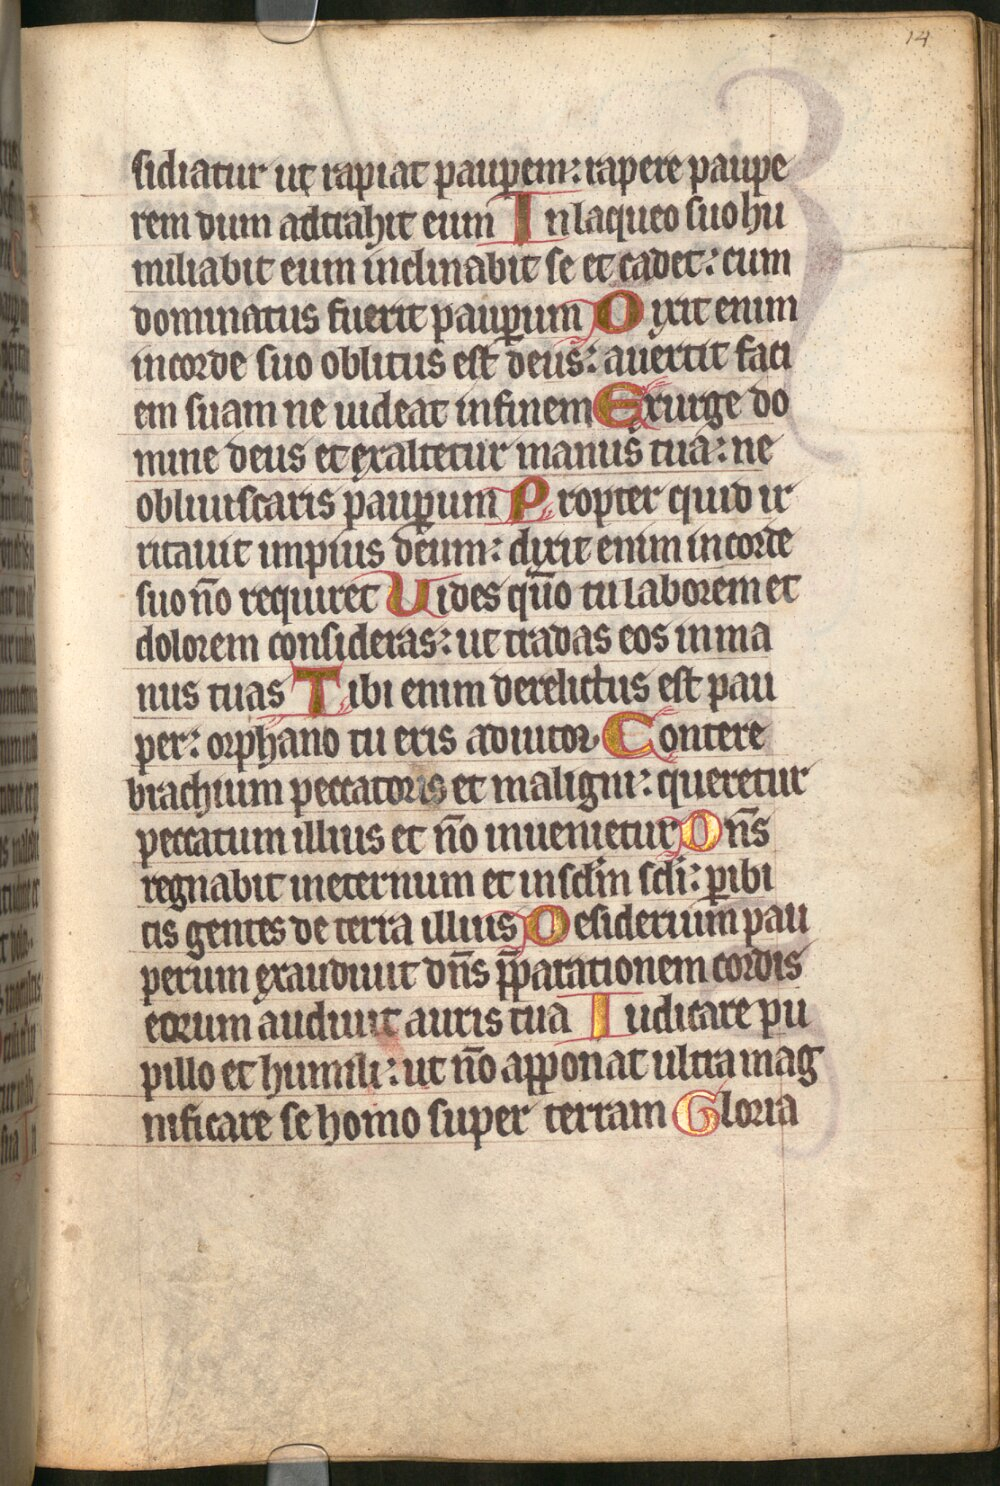 14
sidiatur ut rapiat paupem: rapere paupe
rem dum adtrahit eum In laqueo suo hu
miliabit eum inclinabit se et cadet: cum
dominatus fuerit paupum Dixit enim
in corde suo oblitus est deus: auertit faci
em suam ne uideat in finem Exurge do
mine deus et exaltetur manus tua: ne
obliuiscaris paupum Propter quid ir
ritauit impius deum: dixit enim in corde
suo nō requiret Uides qūo tu laborem et
dolorem consideras: ut tradas eos in ma
nus tuas Tibi enim derelictus est pau
per: orphano tu eris adiutor Contere
brachium peccatoris et maligni: queretur
peccatum illius et nō inuenietur Dn̄s
regnabit in eternum et in sclm̄ scli: pibi
tis gentes de terra illius Desiderium pau
perum exaudiuit dn̄s pp̄arationem cordis
eorum audiuit auris tua Iudicare pu
pillo et humili: ut nō apponat ultra mag
nificare se homo super terram Gloria